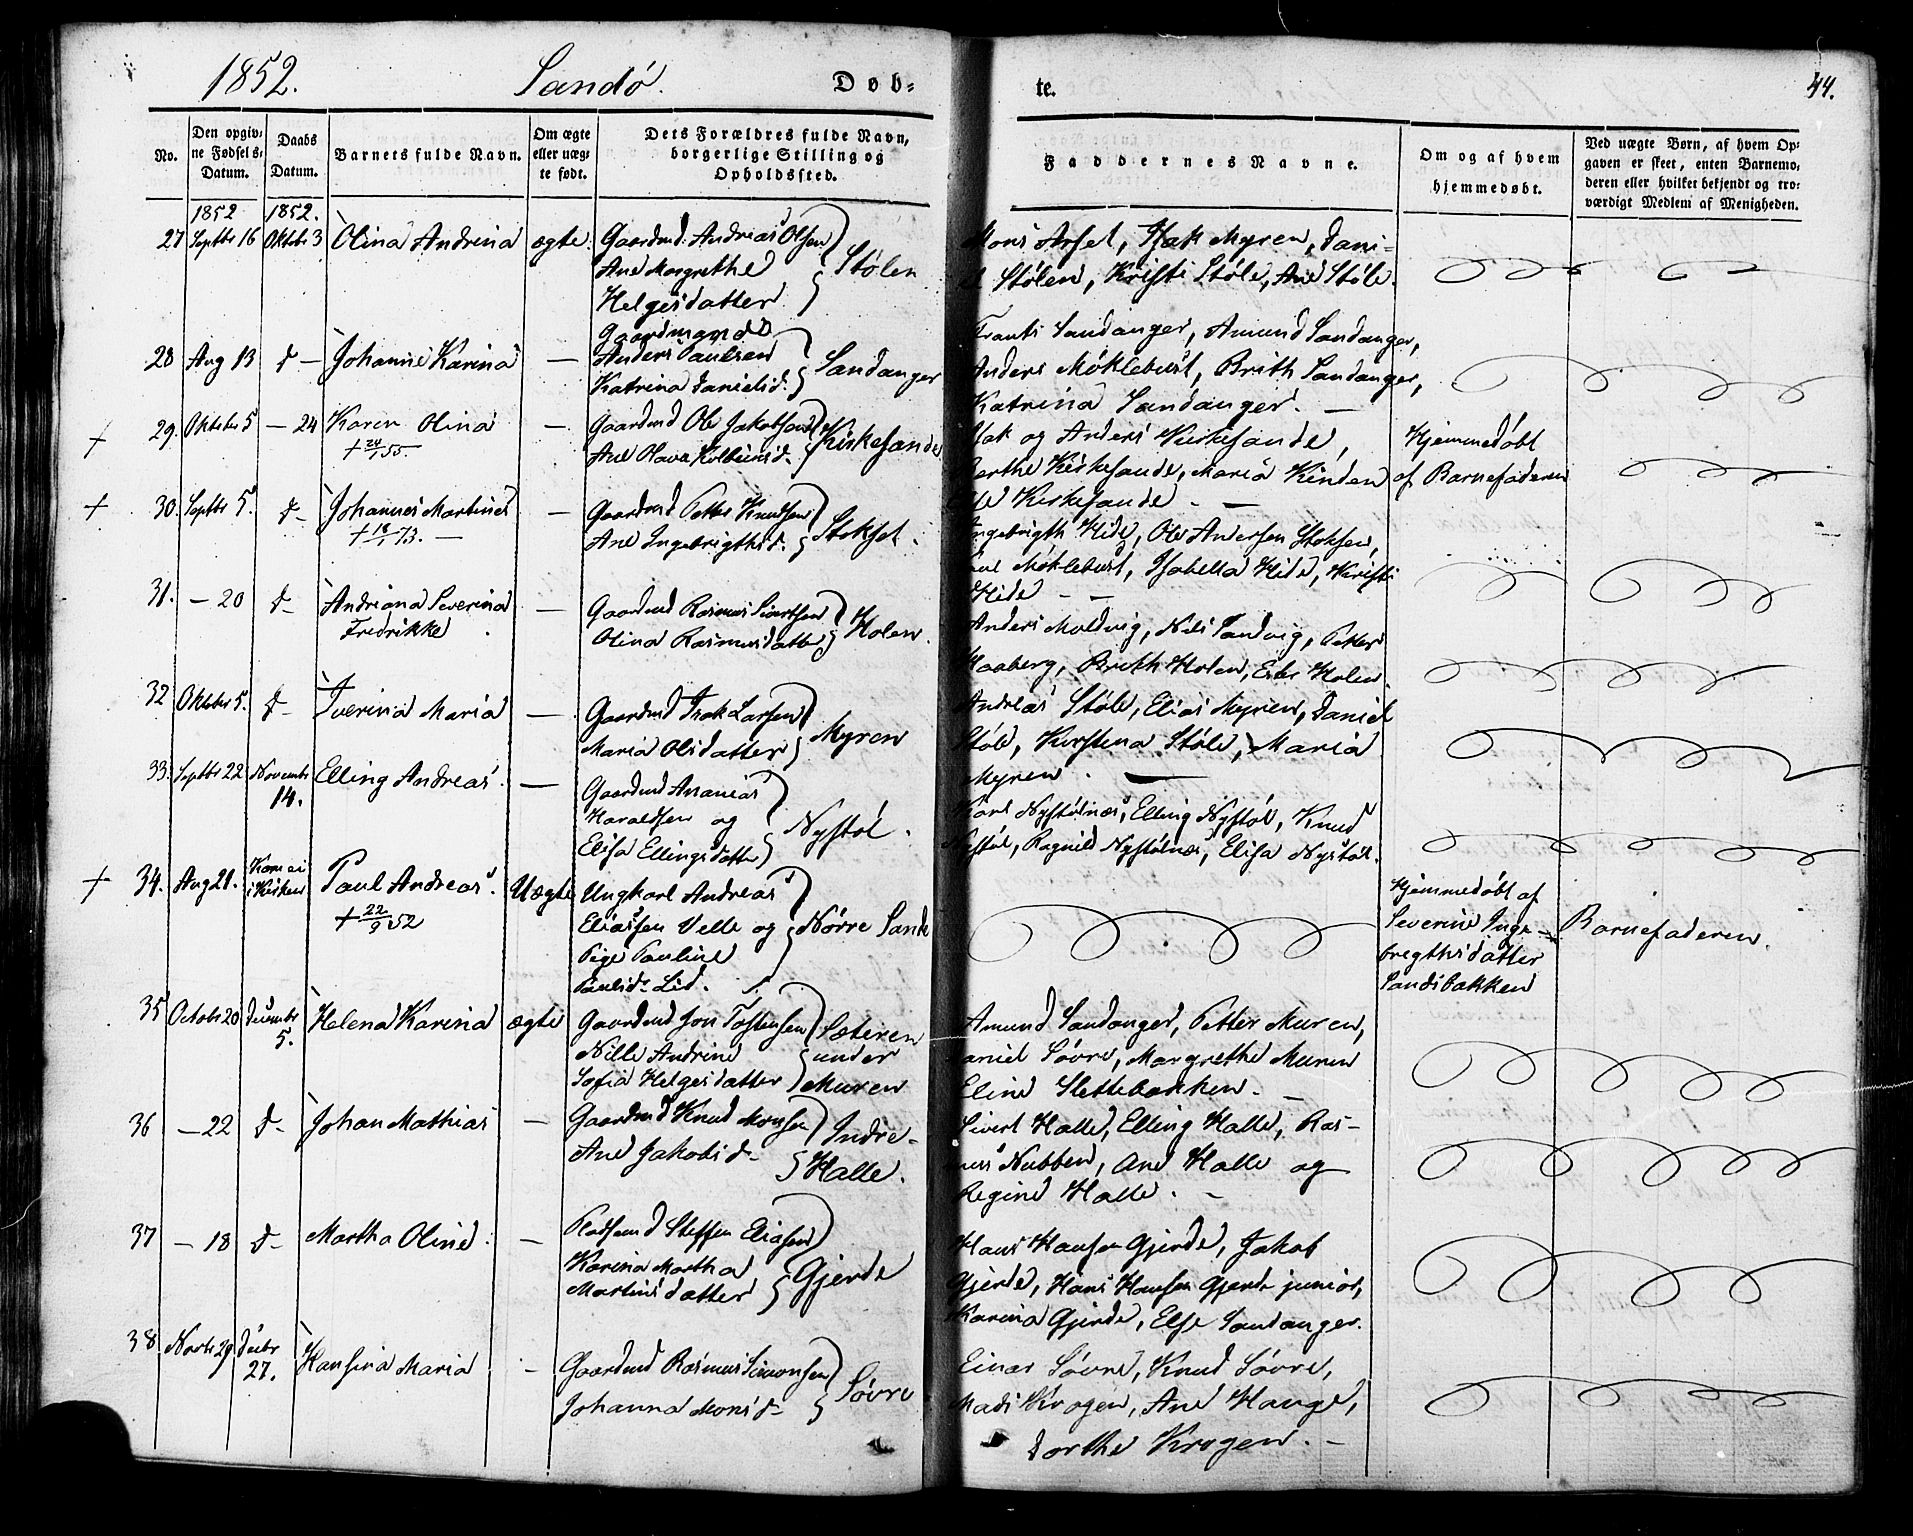 1852. Sandö. Döb-
te. 44.
No.
Den opgiv-
ne Fødsels-
Datum.
Daabs
Datum.
Barnets fulde Navn.
Om ægte
eller uæg-
te født.
Dets Forældres fulde Navn,
borgerlige Stilling og
Opholdssted.
Faddernes Navne.
Om og af hvem
hjemmedøbt.
Ved uægte Børn, af hvem Op-
gaven er skeet, enten Barnemo-
deren eller hvilket bekjendt og tro-
værdigt Medlem af Menigheden.
1852 1852.
27 Septbr 16 Oktobr 3 Olina Andrina ægte.
Gaardmd. Andreas Olsen
Ane Margrethe
Helgesdatter
Stölen
Mons Arset, Isak Myren, Dani-
el Stölen, Kristi Störe, Ane Störe.
28 Aug 13 d- Johanne Karina —
Gaardmand
Anders Paulsen
Katrina Danielsd.
Sandanger
Frants Sandanger, Amund Sandanger,
Anders Möklebust, Brith Sandanger,
Katrina Sandanger. —
+ 29. Oktober 5 — 24 Karen Olina —
+ 24/1 55.
Gaardmd Ole Jakobsen
Ane Olava Kolbeinsd.
Kirkesande
Isak og Anders Kirkesande,
Berthe Kirkesande, Maria Kinden
Kirkesande —
Hjemmedöbt
af Barnefaderen
+ 30. Septbr 5. d- Johannes Martinus —
+ 18/1 73. —
Gaardmd Petter Knudsen
Ane Ingebrigthsd.
Stokset.
Ingebrigth Hide, Ole Andersen Stoksen,
Möklebust, Isabella Hide, Kristi
Hide —
31. — 20 d- Andriana Severina —
Fredrikke
Gaardmd Rasmus Sivertsen
Olina Rasmusdatter
Holen.
Anders Moldvig, Nils Sandvig, Petter
Haaberg, Brith Holen, Holen
32 Oktober 5. d- Iverina Maria —
Gaardmd Isak Larsen
Maria Olsdatter
Myren
Andreas Störe, Elias Myren, Daniel
Störe, Kirstena Störe, Maria
Myren. —
33. Septbr 22 Novembr
14.
Elling Andreas. —
Gaardmd Ananias
Haraldsen og
Elisa Ellingsdatter
Nystöl.
Karl Nystölnæs, Elling Nystöl, Knud
Nystöl, Ragnild Nystölnæs, Elisa Nystöl.
+ 34. Aug 21. Kom ei
i Kirken
Paul Andreas. Uægte
+ 22/9 52
Ungkarl Andreas
Eliassen Velle og
Pige Pauline
Paulsd. Lid.
Nörre Sande
Hjemmedöbt af
Severine Inge-
bregthsdatter
Sandsbakken
Barnefaderen.
35 Octobr 20 Decembr
5.
Helena Karina ægte
Gaardmd Jon Tostensen
Nille Andrine
Sofia Helgesdatter
Sæteren
under
Muren
Amund Sandanger, Petter Muren,
Daniel Sövre, Margrethe Muren
Eline Slettebakken. —
36 — 22 d- Johan Mathias —
Gaardmd Knud Monsen
Ane Jakobsd.
Indre-
Halle.
Sivert Halle, Elling Halle, Ras-
mus Nubben, Ane Halle og
Regine Halle. —
37 — 18 d- Martha Oline. —
Pladsmd Steffen Eliasen
Karina Martha
Martinsdatter
Gjerde
Hans Hansen Gjerde, Jakob
Gjerde, Hans Hansen Gjerde junior,
Karina Gjerde, Else Sandanger.
38. Novbr 29 Decbr
27.
Hansina Maria —
Gaardmd Rasmus Simonsen
Johanna Monsd.
Sövre
Einar Sövre, Knud Sövre,
Mads Krogen, Ane Hauge,
Dorthe Krogen. —